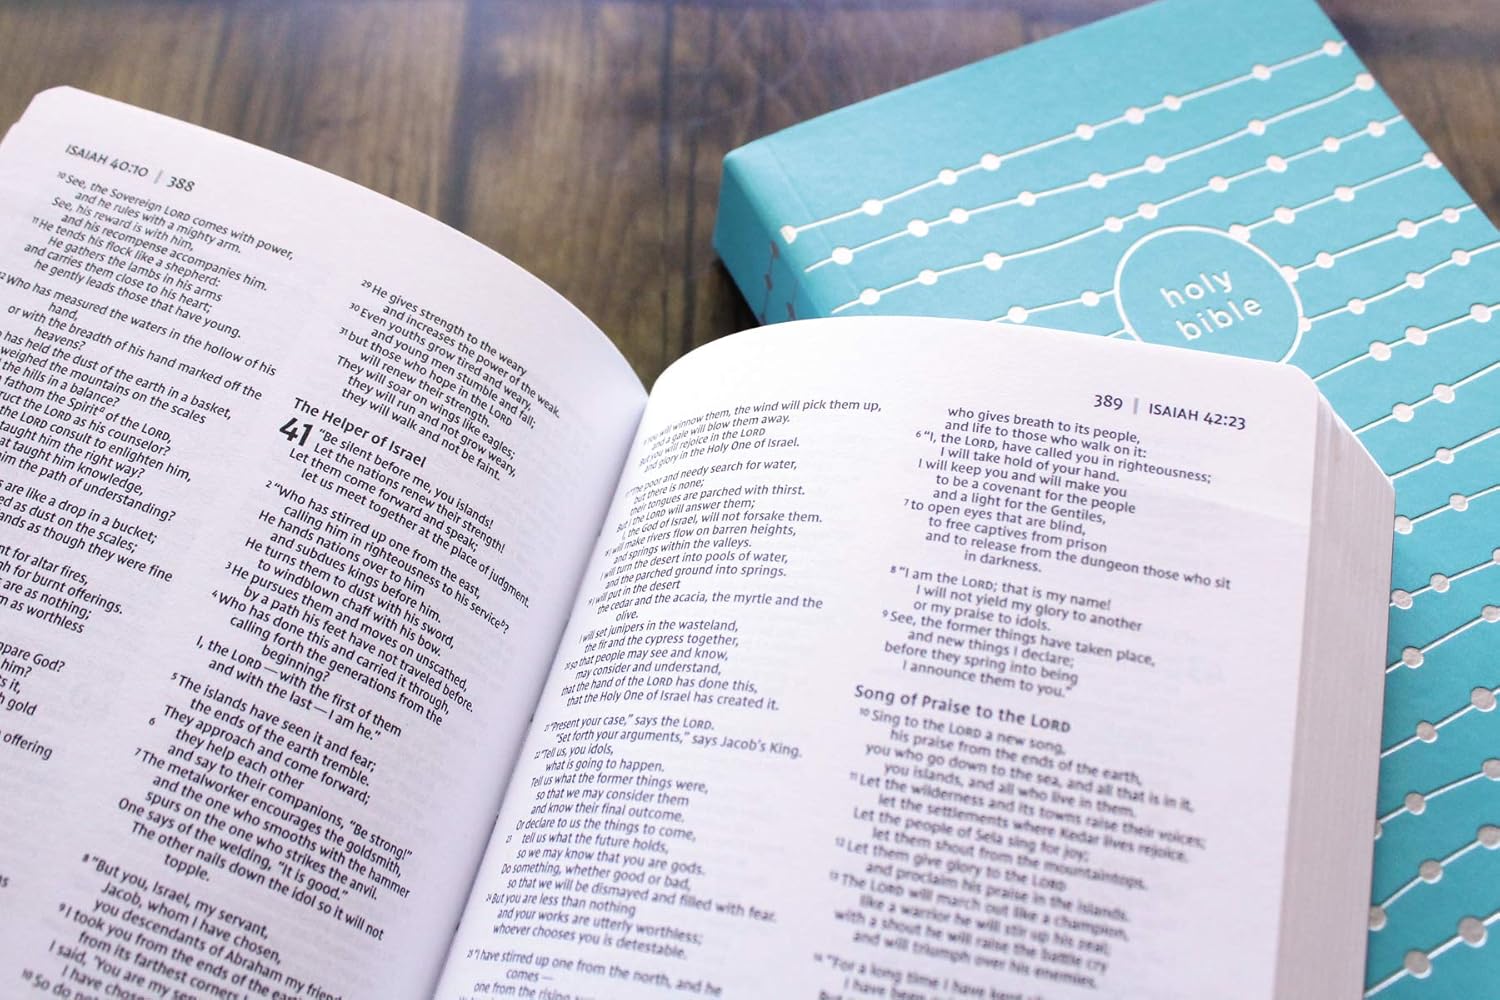 ISAIAH 40:10 | 388
10 See, the Sovereign LORD comes with power,
and he rules with a mighty arm.
See, his reward is with him,
and his recompense accompanies him.
11 He tends his flock like a shepherd:
He gathers the lambs in his arms
and carries them close to his heart;
he gently leads those that have young.
12 Who has measured the waters in the hollow of his
hand,
or with the breadth of his hand marked off the
heavens?
has held the dust of the earth in a basket,
weighed the mountains on the scales
the hills in a balance?
fathom the Spirit d of the LORD,
the LORD as his counselor?
the LORD consult to enlighten him,
taught him the right way?
taught him knowledge,
him the path of understanding?
are like a drop in a bucket;
as dust on the scales;
as though they were fine
for altar fires,
for burnt offerings.
are as nothing;
as worthless
God?
him?
it,
gold
offering
29 He gives strength to the weary
and increases the power of the weak.
30 Even youths grow tired and weary,
and young men stumble and fall;
31 but those who hope in the LORD
will renew their strength.
They will soar on wings like eagles;
they will run and not grow weary,
they will walk and not be faint.
The Helper of Israel
41 "Be silent before me, you islands!
Let the nations renew their strength!
Let them come forward and speak;
let us meet together at the place of judgment.
2 "Who has stirred up one from the east,
calling him in righteousness to his service?
He hands nations over to him
and subdues kings before him.
He turns them to dust with his sword,
to windblown chaff with his bow.
3 He pursues them and moves on unscathed,
by a path his feet have not traveled before.
4 Who has done this and carried it through,
calling forth the generations from the
beginning?
I, the LORD—with the first of them
and with the last—I am he."
5 The islands have seen it and fear;
the ends of the earth tremble.
They approach and come forward;
6 they help each other
and say to their companions, "Be strong!"
7 The metalworker encourages the goldsmith,
and the one who smooths with the hammer
spurs on the one who strikes the anvil.
One says of the welding, "It is good."
The other nails down the idol so it will not
topple.
8 "But you, Israel, my servant,
Jacob, whom I have chosen,
you descendants of Abraham my friend,
9 I took you from the ends of the earth,
from its farthest corners I
I said, 'You are my servant
I have chosen
10 So do not
389 | ISAIAH 42:23
You will winnow them, the wind will pick them up,
and a gale will blow them away.
But you will rejoice in the LORD
and glory in the Holy One of Israel.
17 "The poor and needy search for water,
but there is none;
their tongues are parched with thirst.
But I the LORD will answer them;
I, the God of Israel, will not forsake them.
18 I will make rivers flow on barren heights,
and springs within the valleys.
I will turn the desert into pools of water,
and the parched ground into springs.
19 I will put in the desert
the cedar and the acacia, the myrtle and the
olive.
I will set junipers in the wasteland,
the fir and the cypress together,
20 so that people may see and know,
may consider and understand,
that the hand of the LORD has done this,
that the Holy One of Israel has created it.
21 "Present your case," says the LORD.
"Set forth your arguments," says Jacob's King.
22 "Tell us, you idols,
what is going to happen.
Tell us what the former things were,
so that we may consider them
and know their final outcome.
Or declare to us the things to come,
23 tell us what the future holds,
so we may know that you are gods.
Do something, whether good or bad,
so that we will be dismayed and filled with fear.
24 But you are less than nothing
and your works are utterly worthless;
whoever chooses you is detestable.
25 "I have stirred up one from the north, and he
comes—
one from the rising
who gives breath to its people,
and life to those who walk on it:
6 "I, the LORD, have called you in righteousness;
I will take hold of your hand.
I will keep you and will make you
to be a covenant for the people
and a light for the Gentiles,
7 to open eyes that are blind,
to free captives from prison
and to release from the dungeon those who sit
in darkness.
8 "I am the LORD; that is my name!
I will not yield my glory to another
or my praise to idols.
9 See, the former things have taken place,
and new things I declare;
before they spring into being
I announce them to you."
Song of Praise to the LORD
10 Sing to the LORD a new song,
his praise from the ends of the earth,
you who go down to the sea, and all that is in it,
you islands, and all who live in them.
11 Let the wilderness and its towns raise their voices;
let the settlements where Kedar lives rejoice.
Let the people of Sela sing for joy;
let them shout from the mountaintops.
12 Let them give glory to the LORD
and proclaim his praise in the islands.
13 The LORD will march out like a champion,
like a warrior he will stir up his zeal;
with a shout he will raise the battle cry
and will triumph over his enemies.
14 "For a long time I have kept
I have been
holy
bible